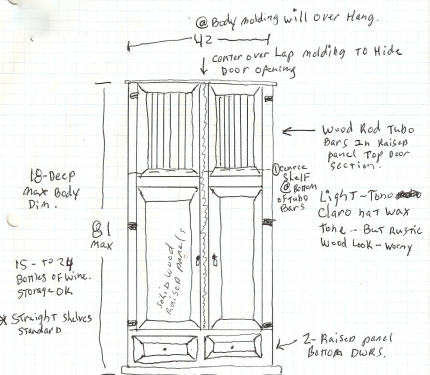 @ Body molding will over Hang.
42
center over Lap molding To Hide
Door opening
Wood Rod Tubo
Bars In Raised
panel Top Door
section.
1 center
shelf
@ Bottom
of Tubo
Bars
18-Deep
max Body
Dim.
81
max
LigHT-Tono
Claro nat wax
Tone - But Rustic
Wood Look - Worny
15 - to 24
Bottles of Wine.
Storage OK
* Straight shelves
Standard
Solid Wood
Raised panels
2-Raised panel
Bottom DWRS.